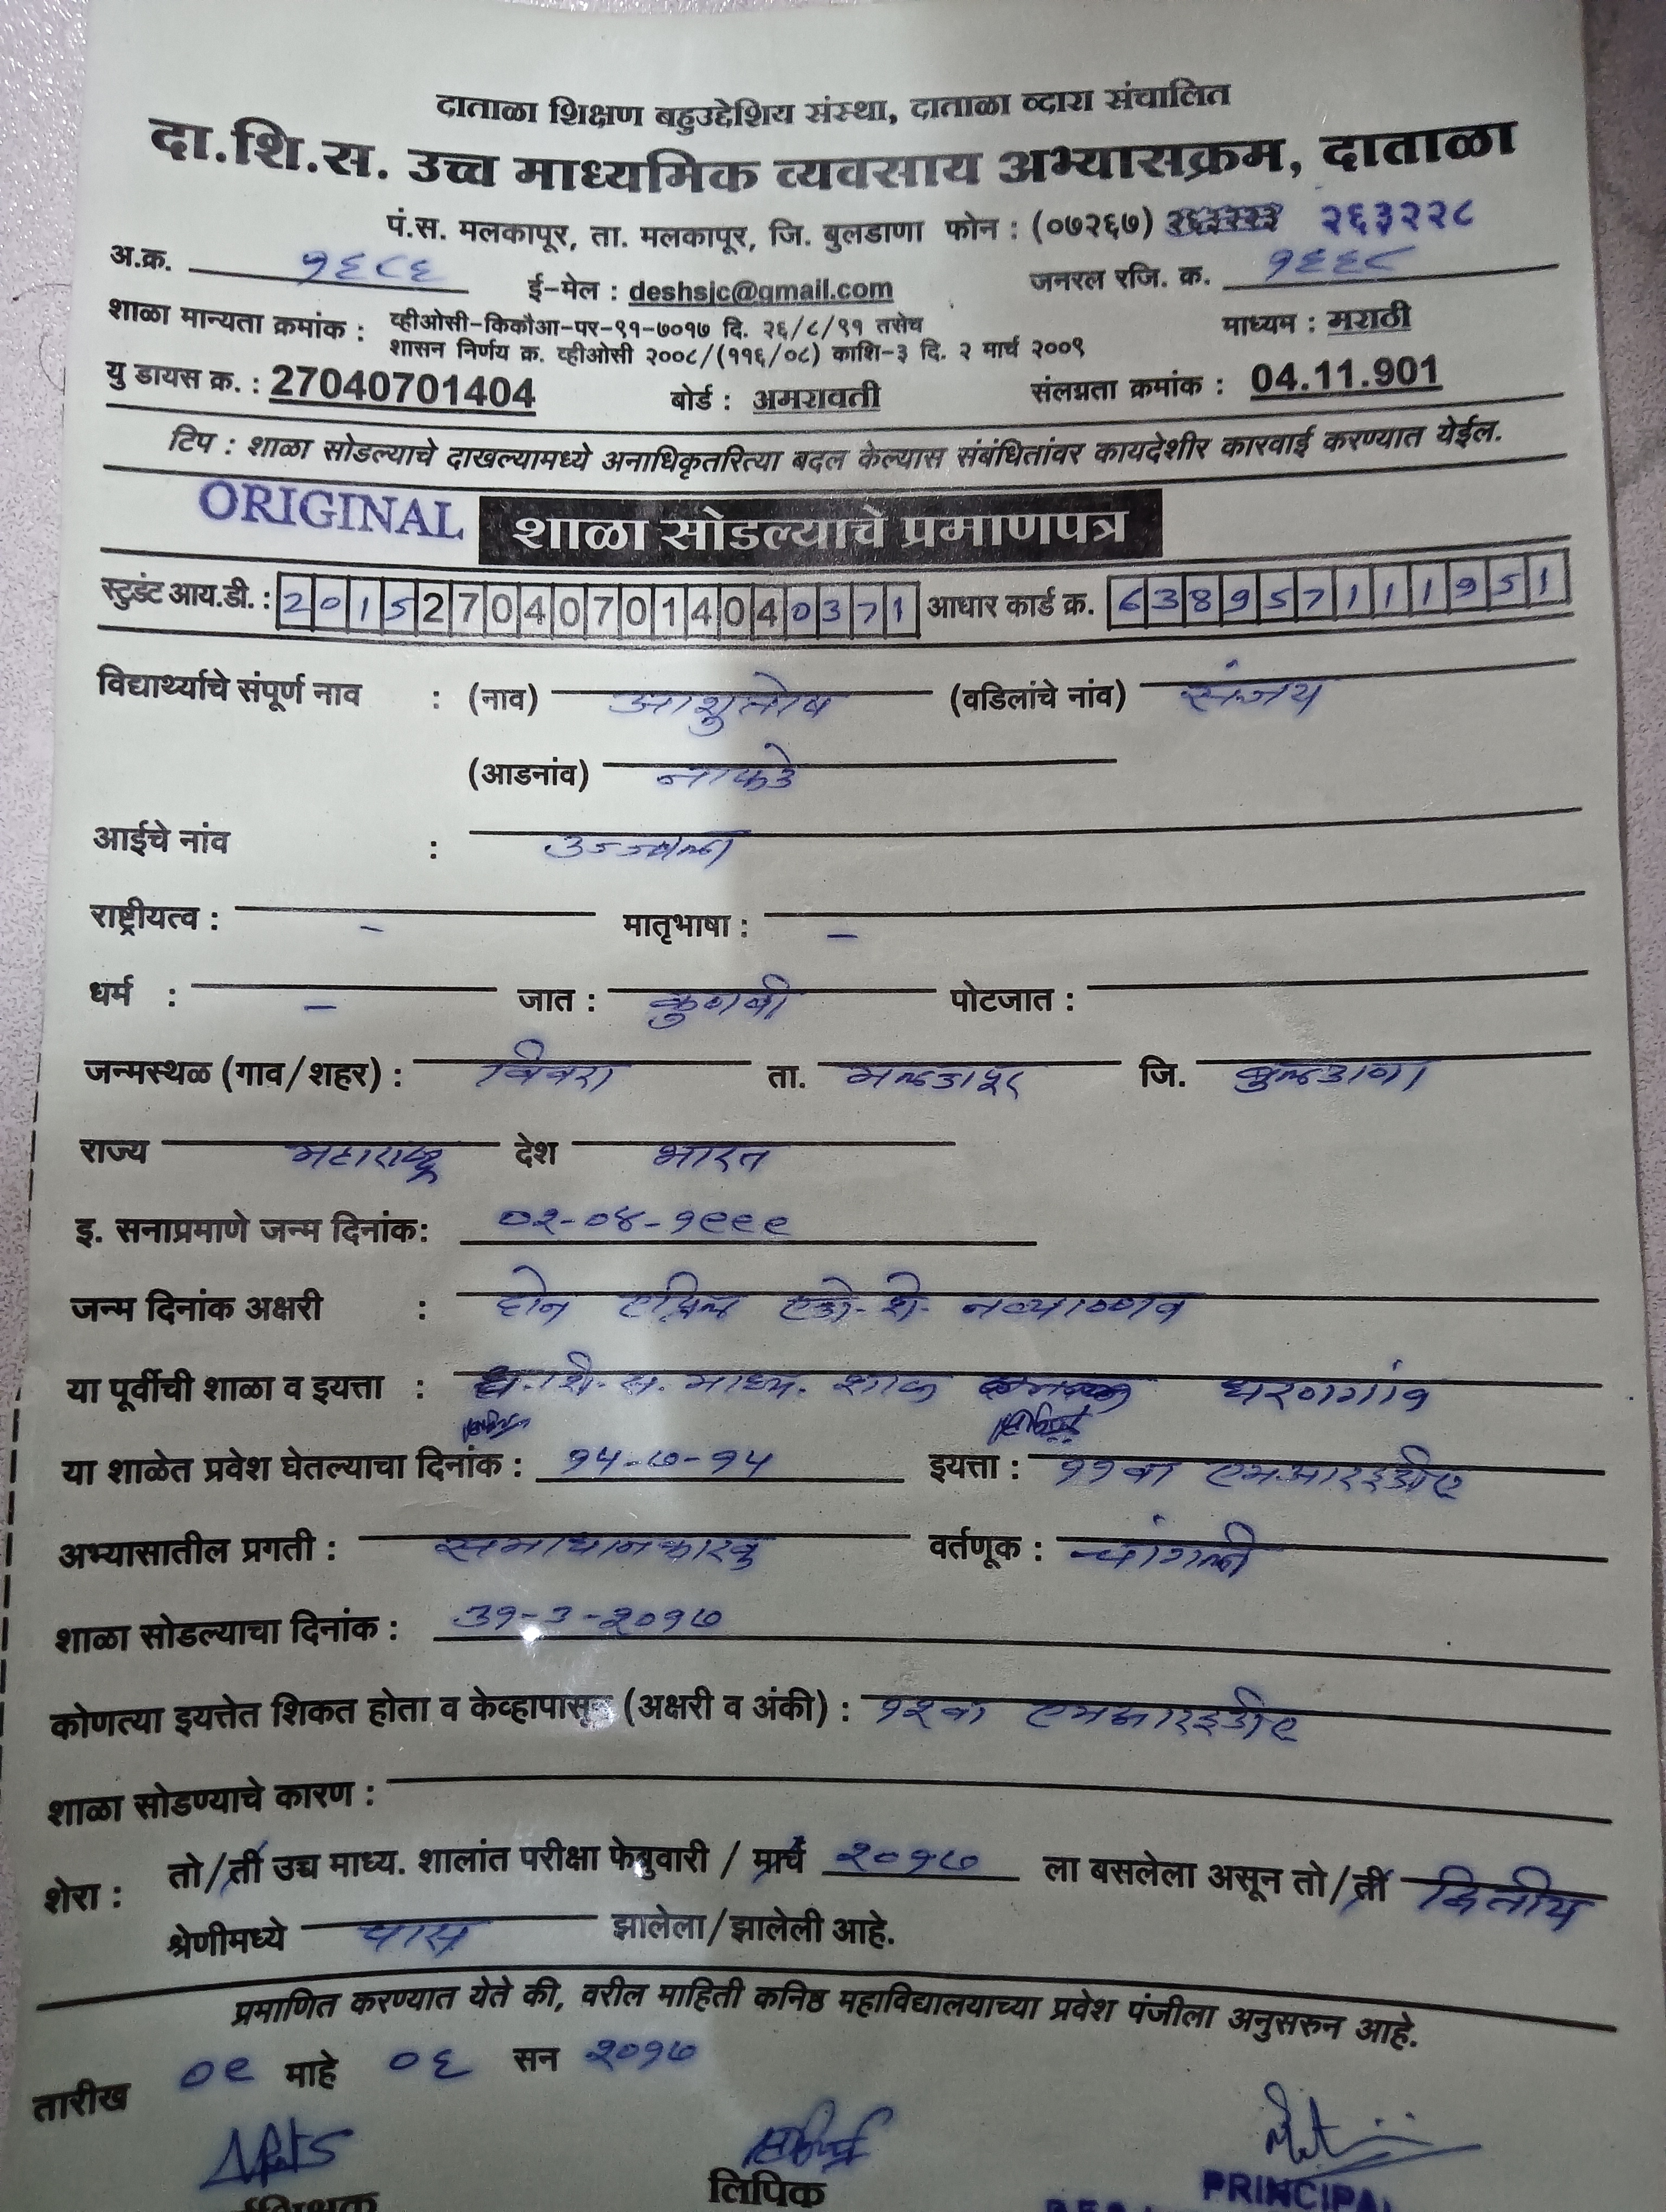 दाताळा शिक्षण बहुउद्देशिय संस्था, दाताळा व्दारा संचालित
दा.शि.स. उच्च माध्यमिक व्यवसाय अभ्यासक्रम, दाताळा
पं.स. मलकापूर, ता. मलकापूर, जि. बुलडाणा फोन : (०७२६७) २६३२२८
अ.क्र. १६८६ ई-मेल : deshsjc@gmail.com जनरल रजि. क्र. १६६८
शाळा मान्यता क्रमांक : व्हीओसी-किकौआ-पर-९१-७०१७ दि. २६/८/९१ तसेच माध्यम : मराठी
शासन निर्णय क्र. व्हीओसी २००८/(११६/०८) काशि-३ दि. २ मार्च २००९
यु डायस क्र. : 27040701404 बोर्ड : अमरावती संलग्नता क्रमांक : 04.11.901
टिप : शाळा सोडल्याचे दाखल्यामध्ये अनाधिकृतरित्या बदल केल्यास संबंधितांवर कायदेशीर कारवाई करण्यात येईल.
ORIGINAL शाळा सोडल्याचे प्रमाणपत्र
स्टुडंट आय.डी. : 2015270407014040371 आधार कार्ड क्र. 638957111951
विद्यार्थ्याचे संपूर्ण नाव : (नाव) आशुतोष (वडिलांचे नांव) संजय
(आडनांव) नाफडे
आईचे नांव : उज्ज्वला
राष्ट्रीयत्व : - मातृभाषा : -
धर्म : - जात : कुणबी पोटजात :
जन्मस्थळ (गाव/शहर) : विवरा ता. मलकापूर जि. बुलडाणा
राज्य महाराष्ट्र देश भारत
इ. सनाप्रमाणे जन्म दिनांक: ०२-०४-१९९९
जन्म दिनांक अक्षरी : दोन एप्रिल एको. शे. नव्याण्णव
या पूर्वीची शाळा व इयत्ता : ध. शि. स. माध्य. शाळा धरणगांव
या शाळेत प्रवेश घेतल्याचा दिनांक : १५-७-१५ इयत्ता : ११वा एमआरईडीए
अभ्यासातील प्रगती : समाधानकारक वर्तणूक : चांगली
शाळा सोडल्याचा दिनांक : ३१-३-२०१७
कोणत्या इयत्तेत शिकत होता व केव्हापासून (अक्षरी व अंकी) : १२वा एमआरईडीए
शाळा सोडण्याचे कारण :
शेरा : तो/ती उच्च माध्य. शालांत परीक्षा फेब्रुवारी / मार्च २०१७ ला बसलेला असून तो/ती द्वितीय
श्रेणीमध्ये पास झालेला/झालेली आहे.
प्रमाणित करण्यात येते की, वरील माहिती कनिष्ठ महाविद्यालयाच्या प्रवेश पंजीला अनुसरुन आहे.
तारीख ०९ माहे ०६ सन २०१७
लिपिक PRINCIPAL